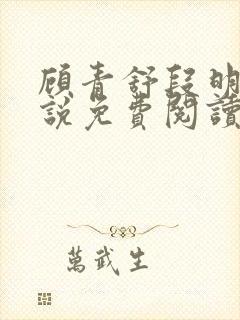 顾青舒段明
說免費閱讀
萬武生